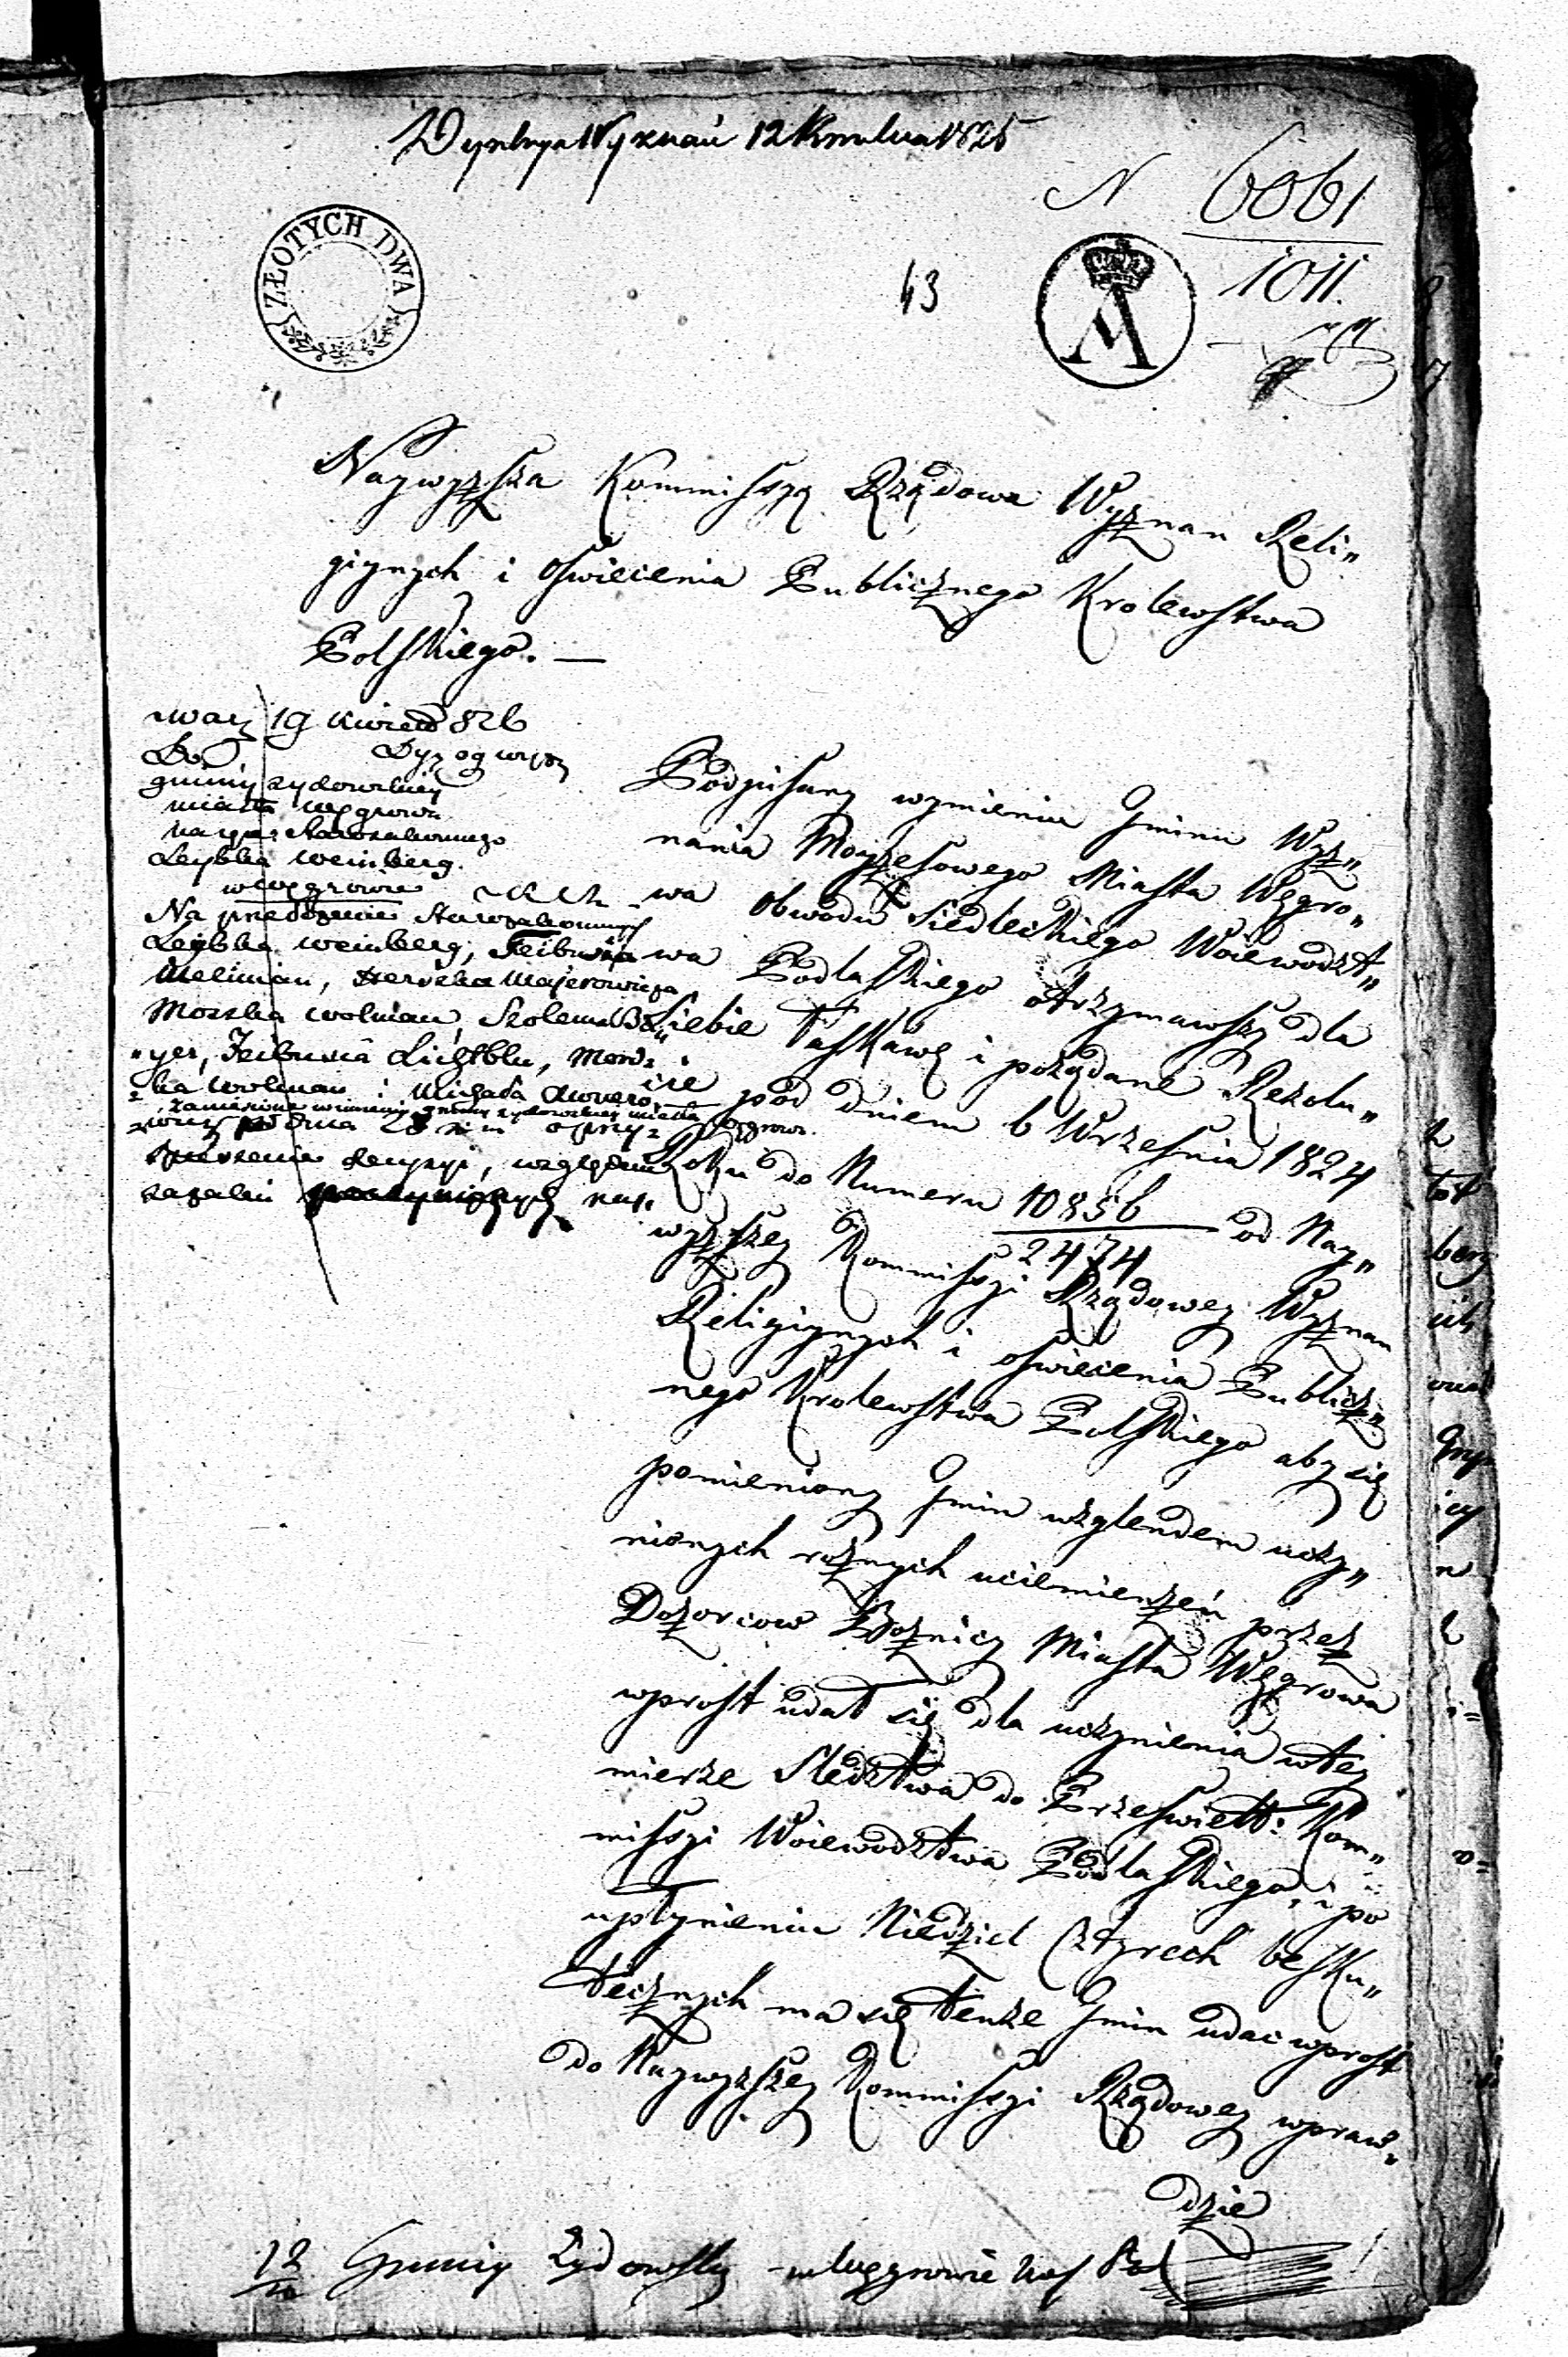 Wyznań 12 Kwietnia 1825
N 6061
1011.
ZŁOTYCH DWA
43
Naywyższa Kommissya Rządowa Wyznan Reli„
giynych i Oswiecenia Publicznego Krolewstwa
Polskiego. —
19 kwiet 826
Do
gminy żydowskiey
miasta Węgrowa
na ręce Starozakonnego
Leybka Weinberg.
w Węgrowie
Na przedstawienie Starozakonnych
Leybka Weinberg, Leibusia
Melman, Herszka Majerowicza
Moszka Wolman, Szolema
„yer, Leibusia Lichtblu, Mord„
„ka Wolman i
zaniesione w imieniu gminy żydowskiey miasta Węgrowa
decyzyi, względem
zażaleń
Podpisany wymieniu Gminu Wyz„
nania Moyżesowego Miasta Węgro„
wa Obwodu Siedleckiego Woiewodzt„
wa Podlaskiego otrzymawszy dla
Siebie łaskawę i pożądane Rezolu„
cie pod dniem 6 Wrzesnia 1824
Roku do Numeru 10856/2474 od Nay„
wyższey Kommissyi Rządowey Wyznan
Religiynych i Oswiecenia Publicz„
nego Krolewstwa Polskiego aby się
pomieniony Gmin wzglendem uczy„
nionych rożnych uciemienżeń przez
Dozorcow Bożnicy Miasta Węgrowa
wprost udał się dla uczynienia w tey
mierze Sledztwa do Przeswiett: Kom„
missyi Woiewodztwa Podlaskiego, i po
upłynieniu Niedziel Cztyrech besku„
tecznych ma się tenże Gmin udac wprost
do Naywyższey Kommissyi Rządowey wpraw„
dzie
12/10 Gminy Żydowskiey w Węgrowie